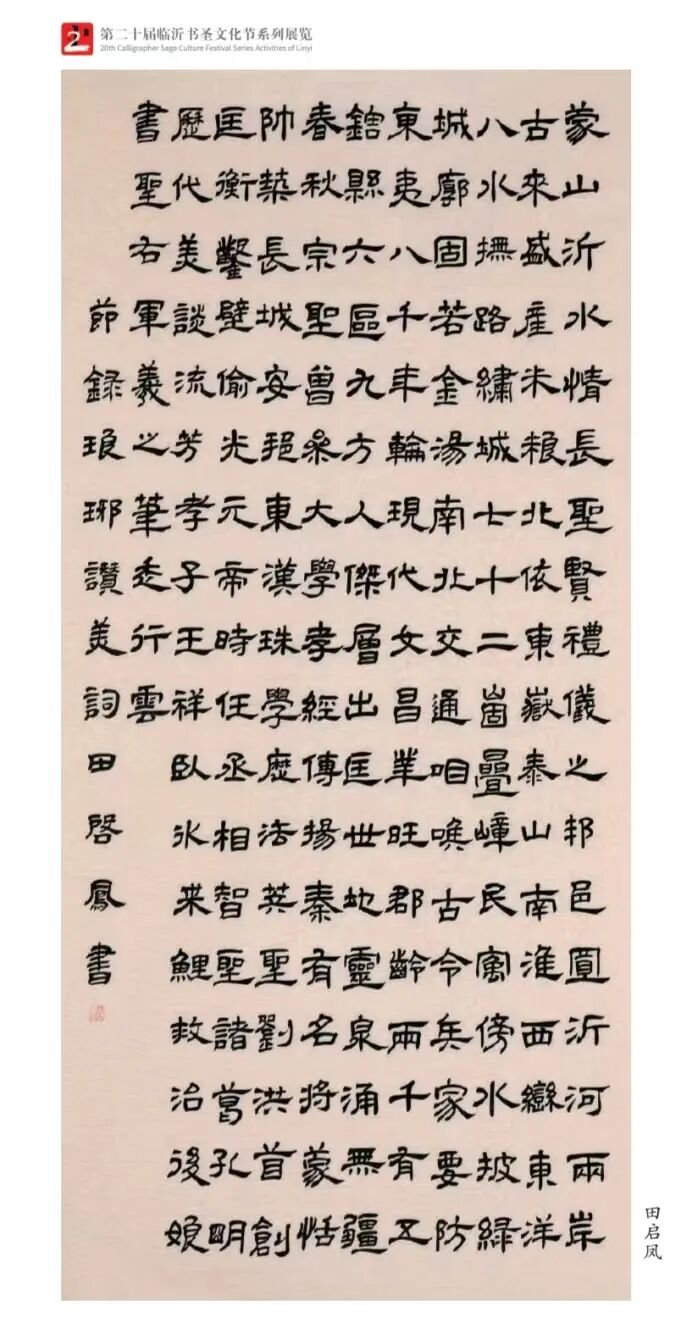 第二十届临沂书圣文化节系列展览
20th Calligrapher Sage Culture Festival Series Activities of Linyi
蒙山沂水情長聖賢禮儀之邦邑圓沂河兩岸
古來盛產米粮北依東嶽泰山南淮西巒東洋
八水撫路繡城七十二崮疊嶂民寓傍水披綠
城廓固若金湯南北交通咽喉古今兵家要防
東夷八千年輪現代文昌業旺郡齡兩千有五
鎋縣六區九方人傑層出匡世地靈泉涌無疆
春秋宗聖曾參大學孝經傳揚秦有名將蒙恬
帥築長城安東漢珠學歷法英聖劉洪首創
匡衡鑿壁偷光元帝時任丞相智聖諸葛孔明
歷代美談流芳孝子王祥臥冰来鯉救治後娘
書聖右軍羲之筆走行雲
節錄琅琊讚美詞田啓鳳書
田启凤